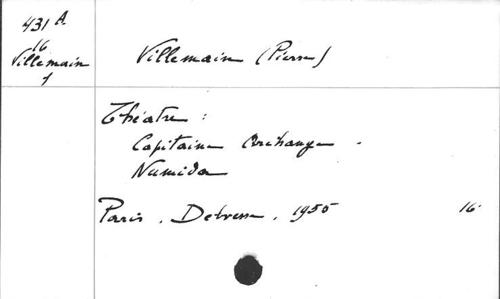 431 A
16
Villemain
1
Villemain (Pierre)
Théatre :
Capitaine Archange .
Numida
Paris . Debresse . 1955 16